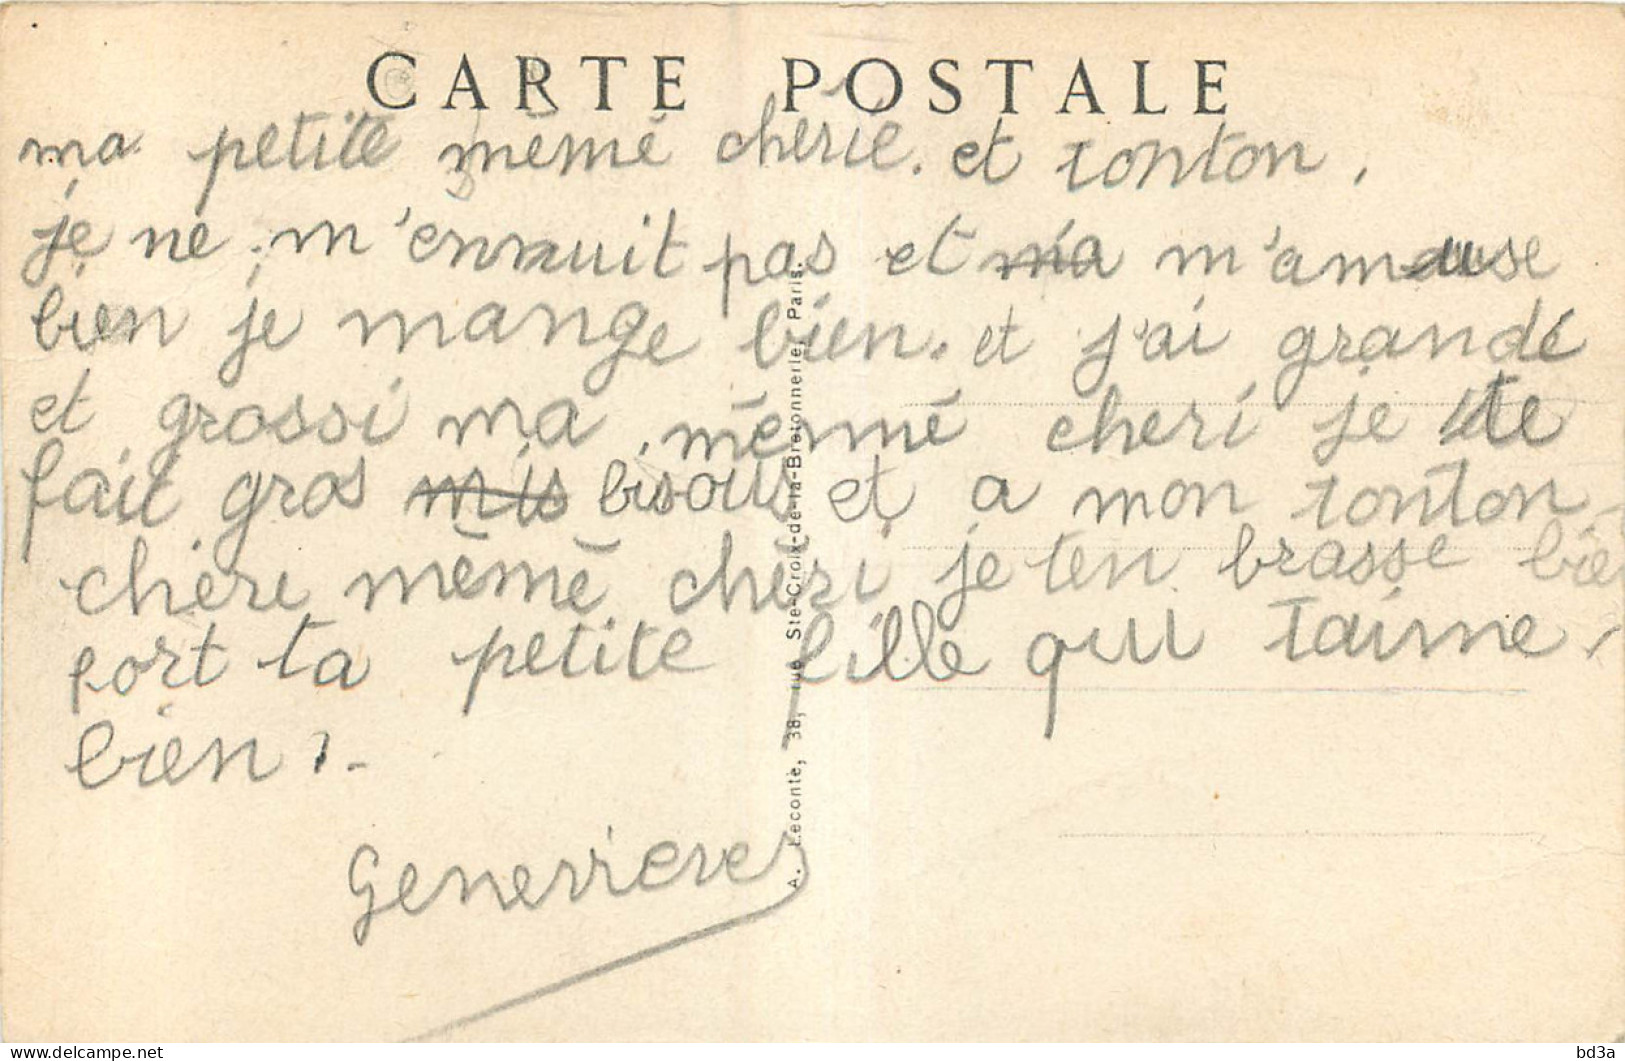 CARTE POSTALE
ma petite mémé cherie. et tonton,
je ne m'ennuit pas et ma m'amuse
bien je mange bien. et j'ai grandé
et grossi ma mémmé cheri je te
fait gros mis bisous et a mon tonton
chère mémé chéri je ten brasse bie
fort ta petite fille qui taime,
bien.
Genevieve
A. Leconte, 38, rue Ste-Croix-de-la-Bretonnerie, Paris.
bd3a